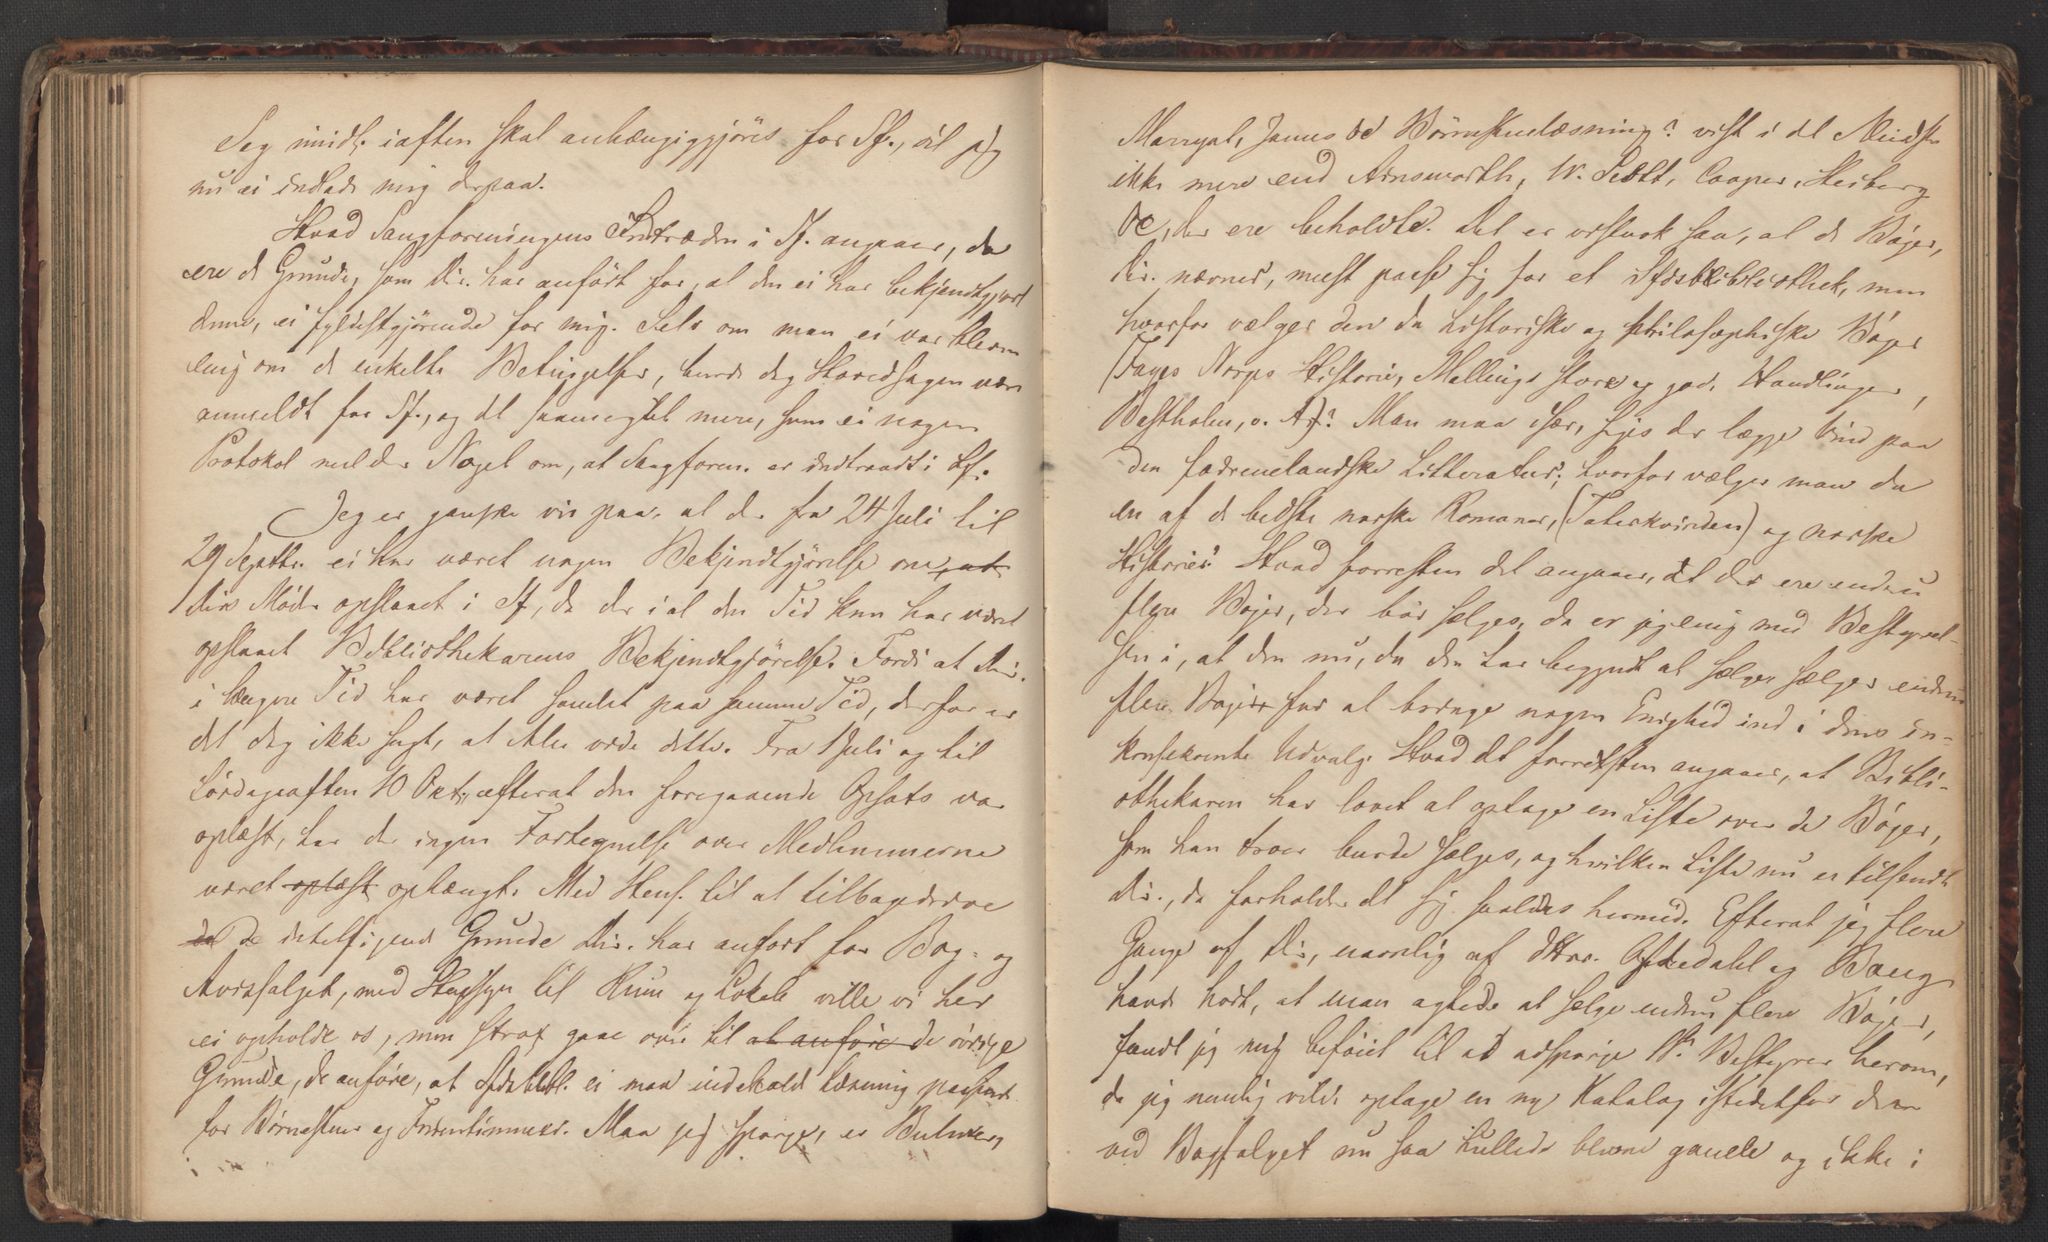 Sag imidl. iaften skal anhængiggjöres for Sf., vil jeg
nu ei indlade mig derpaa.
Hvad Sangforeningens Indtræden i Sf. angaaer, da
ere de Grunde, som Dir. har anfört for, at den ei har bekjendtgjort
denne, ei fyldestgjörende for mig. Selv om man ei var bleven
enig om de enkelte Betingelser, burde dog Hovedsagen være
anmeldt for Sf., og det saameget mere, som ei nogen
Protokol melder Noget om, at Sangforen. er indtraadt i Sf.
Jeg er ganske vis paa, at der fra 24 Juli til
29 Septbr. ei har været nogen Bekjendtgjörelse om at
dir. Möde opslaaet i Sf, da der i al den Tid kun har været
opslaaet Bibliothekarens Bekjendtgjörelse. Fordi at Dir.
i længere Tid har været samlet paa samme Tid, derfor er
det dog ikke sagt, at Alle vide dette. Fra 1 Juli og til
Lördagsaften 10 Okt., efterat den foregaaende Opsats var
oplæst, har der ingen Fortegnelse over Medlemmerne
været oplæst ophængt. Med Hens. til at tilbagedrive
de de intetsigende Grunde Dir. har anfört for Bog- og
Avissalget, med Hensyn til Rum og Lokale ville vi her
ei opholde os, men strax gaae over til at anföre de övrige
Grunde, de anföre, at Sfdsbibl. ei maa indeholde Læsning passende
for Börnestuer og Fruentimmer. Maa jeg spörge, er Bulwer,
Marryat, James &c Börnestuelæsning? vist i det Mindste
ikke mere end Ainsworth, W. Scott, Cooper, Heiberg
&c, der ere beholdte. Det er vistnok saa, at de Böger,
Dir. nævner, mest passe sig for et Sfdsbibliothek, men
hvorfor vælger den da historiske og philosophiske Böger
(Fayes Norges Historie, Mallings store og gode Handlinger,
Bastholm, o. A)? Man maa især, siges der lægge Vind paa
den fædrenelandske Litteratur; hvorfor vælger man da
en af de bedste norske Romaner, (Taterkvinden) og norske
Historier? Hvad forresten det angaaer, at der ere endnu
flere Böger, der bör sælges, da er jeg enig med Bestyrel-
sen i, at den nu, da den har begyndt at sælge, sælger endnu
flere Böger for at bringe nogen Enighed ind i dens in-
konsekvente Udvalg. Hvad det forresten angaaer, at Bibli-
othekaren har lovet at optage en Liste over de Böger,
som han troer burde sælges, og hvilken Liste nu er tilsendt
dir., da forholder det sig saaledes hermed. Efterat jeg flere
Gange af Dir, navnlig af DHrr. Oftedahl og Bang
havde hört, at man agtede at sælge endnu flere Böger,
fandt jeg mig beföiet til at adspörge Hr. Bestyrer herom,
da jeg nemlig vilde optage en ny Katalog istedetfor den
ved Bogsalget nu saa hullede blevne gamle og ikke i